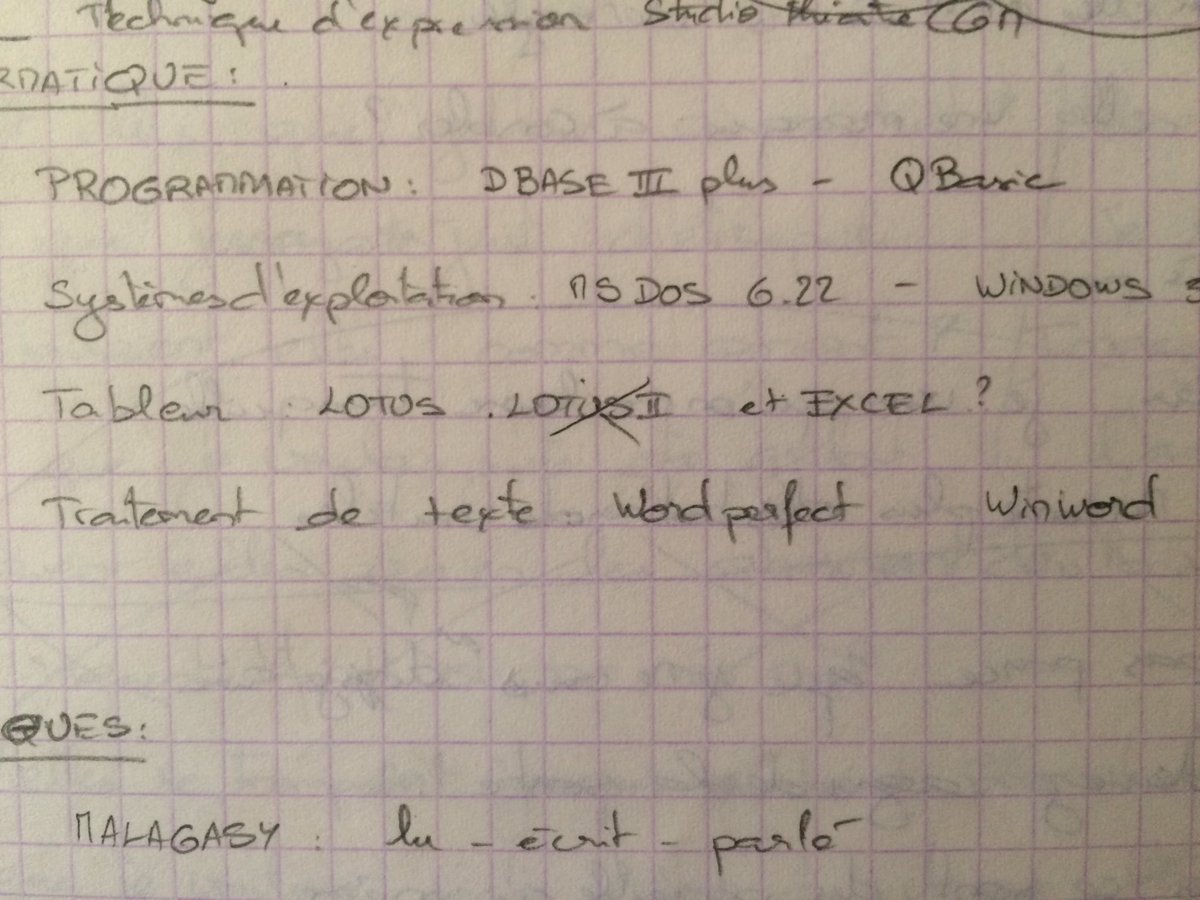 — Technique d'expression Studio CGM
RMATIQUE :
PROGRAMMATION : DBASE III plus - QBasic
Systèmes d'exploitation : MS DOS 6.22 - WINDOWS 3
Tableur : LOTUS . LOTUS II et EXCEL ?
Traitement de texte : Wordperfect Winword
QUES :
MALAGASY : lu - écrit - parlé